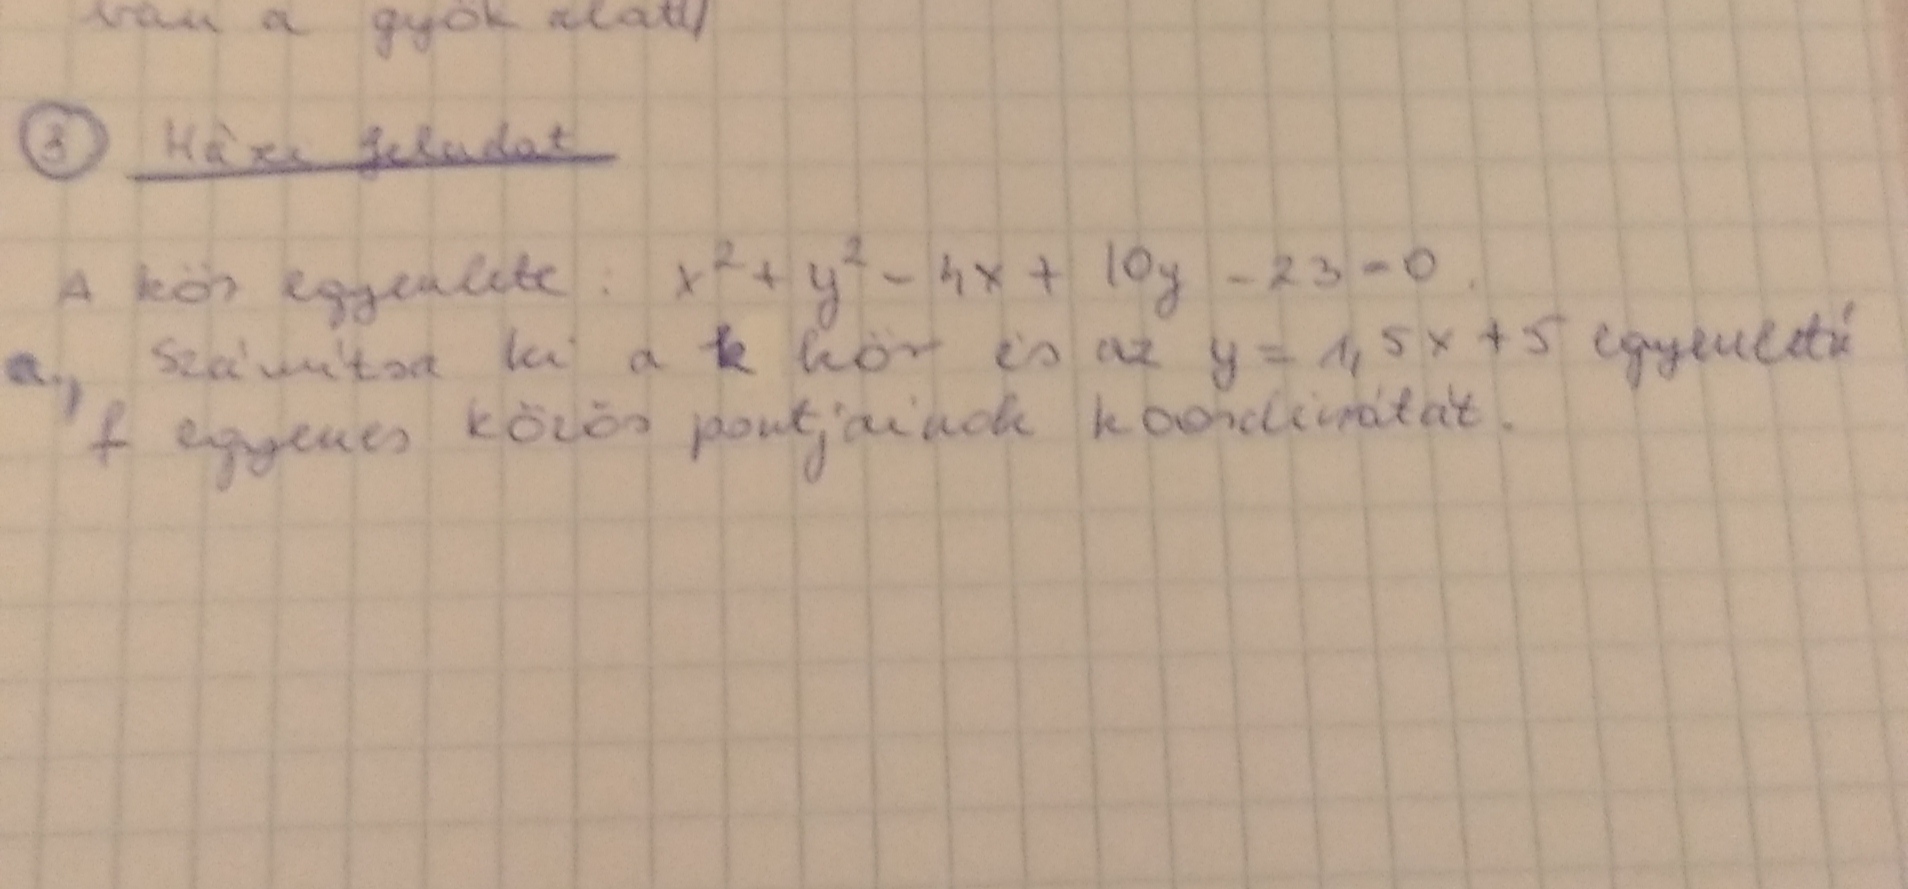 van a gyök alatt
3 Házi feladat
A kör egyenlete: x² + y² - 4x + 10y - 23 = 0.
a., Számítsa ki a k kör és az y = 1,5x + 5 egyenletű
f egyenes közös pontjainak koordinátát.